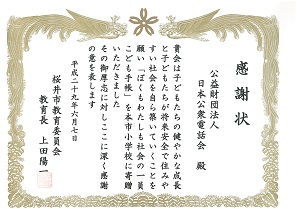 感謝状
公益財団法人
日本公衆電話会 殿
貴会は子どもたちの健やかな成長
と子どもたちが将来安全で住みや
すい社会を自ら築いていくことを
願い「ぼくもわたしも社会の一員
こども手帳」を本市小学校に寄贈
いただきました
その御厚志に対しここに深く感謝
の意を表します
平成二十九年六月七日
桜井市教育委員会
教育長 上田陽一